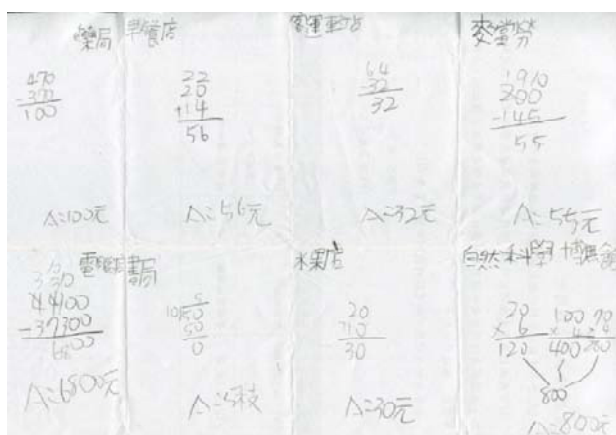 藥局
470
-370
100
A:100元
早餐店
22
20
+14
56
A:56元
客運車站
64
-32
32
A:32元
麥當勞
1910
200
-145
55
A:55元
電腦
44100
-37300
6800
A:6800元
書局
5
10 50
50
0
A:5枝
水果店
20
+10
30
A:30元
自然科學博物館
20 100 70
× 6 × 4 × 4
120 400 280
800
A:800元